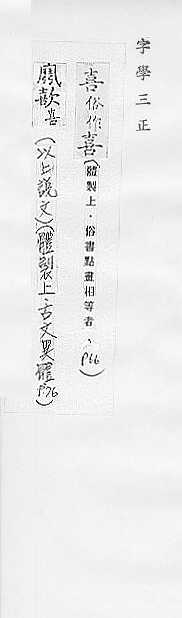 字學三正
喜俗作喜(體製上·俗書點畫相等者、P66)
歖喜(以上說文)(體製上、古文異體P.76)